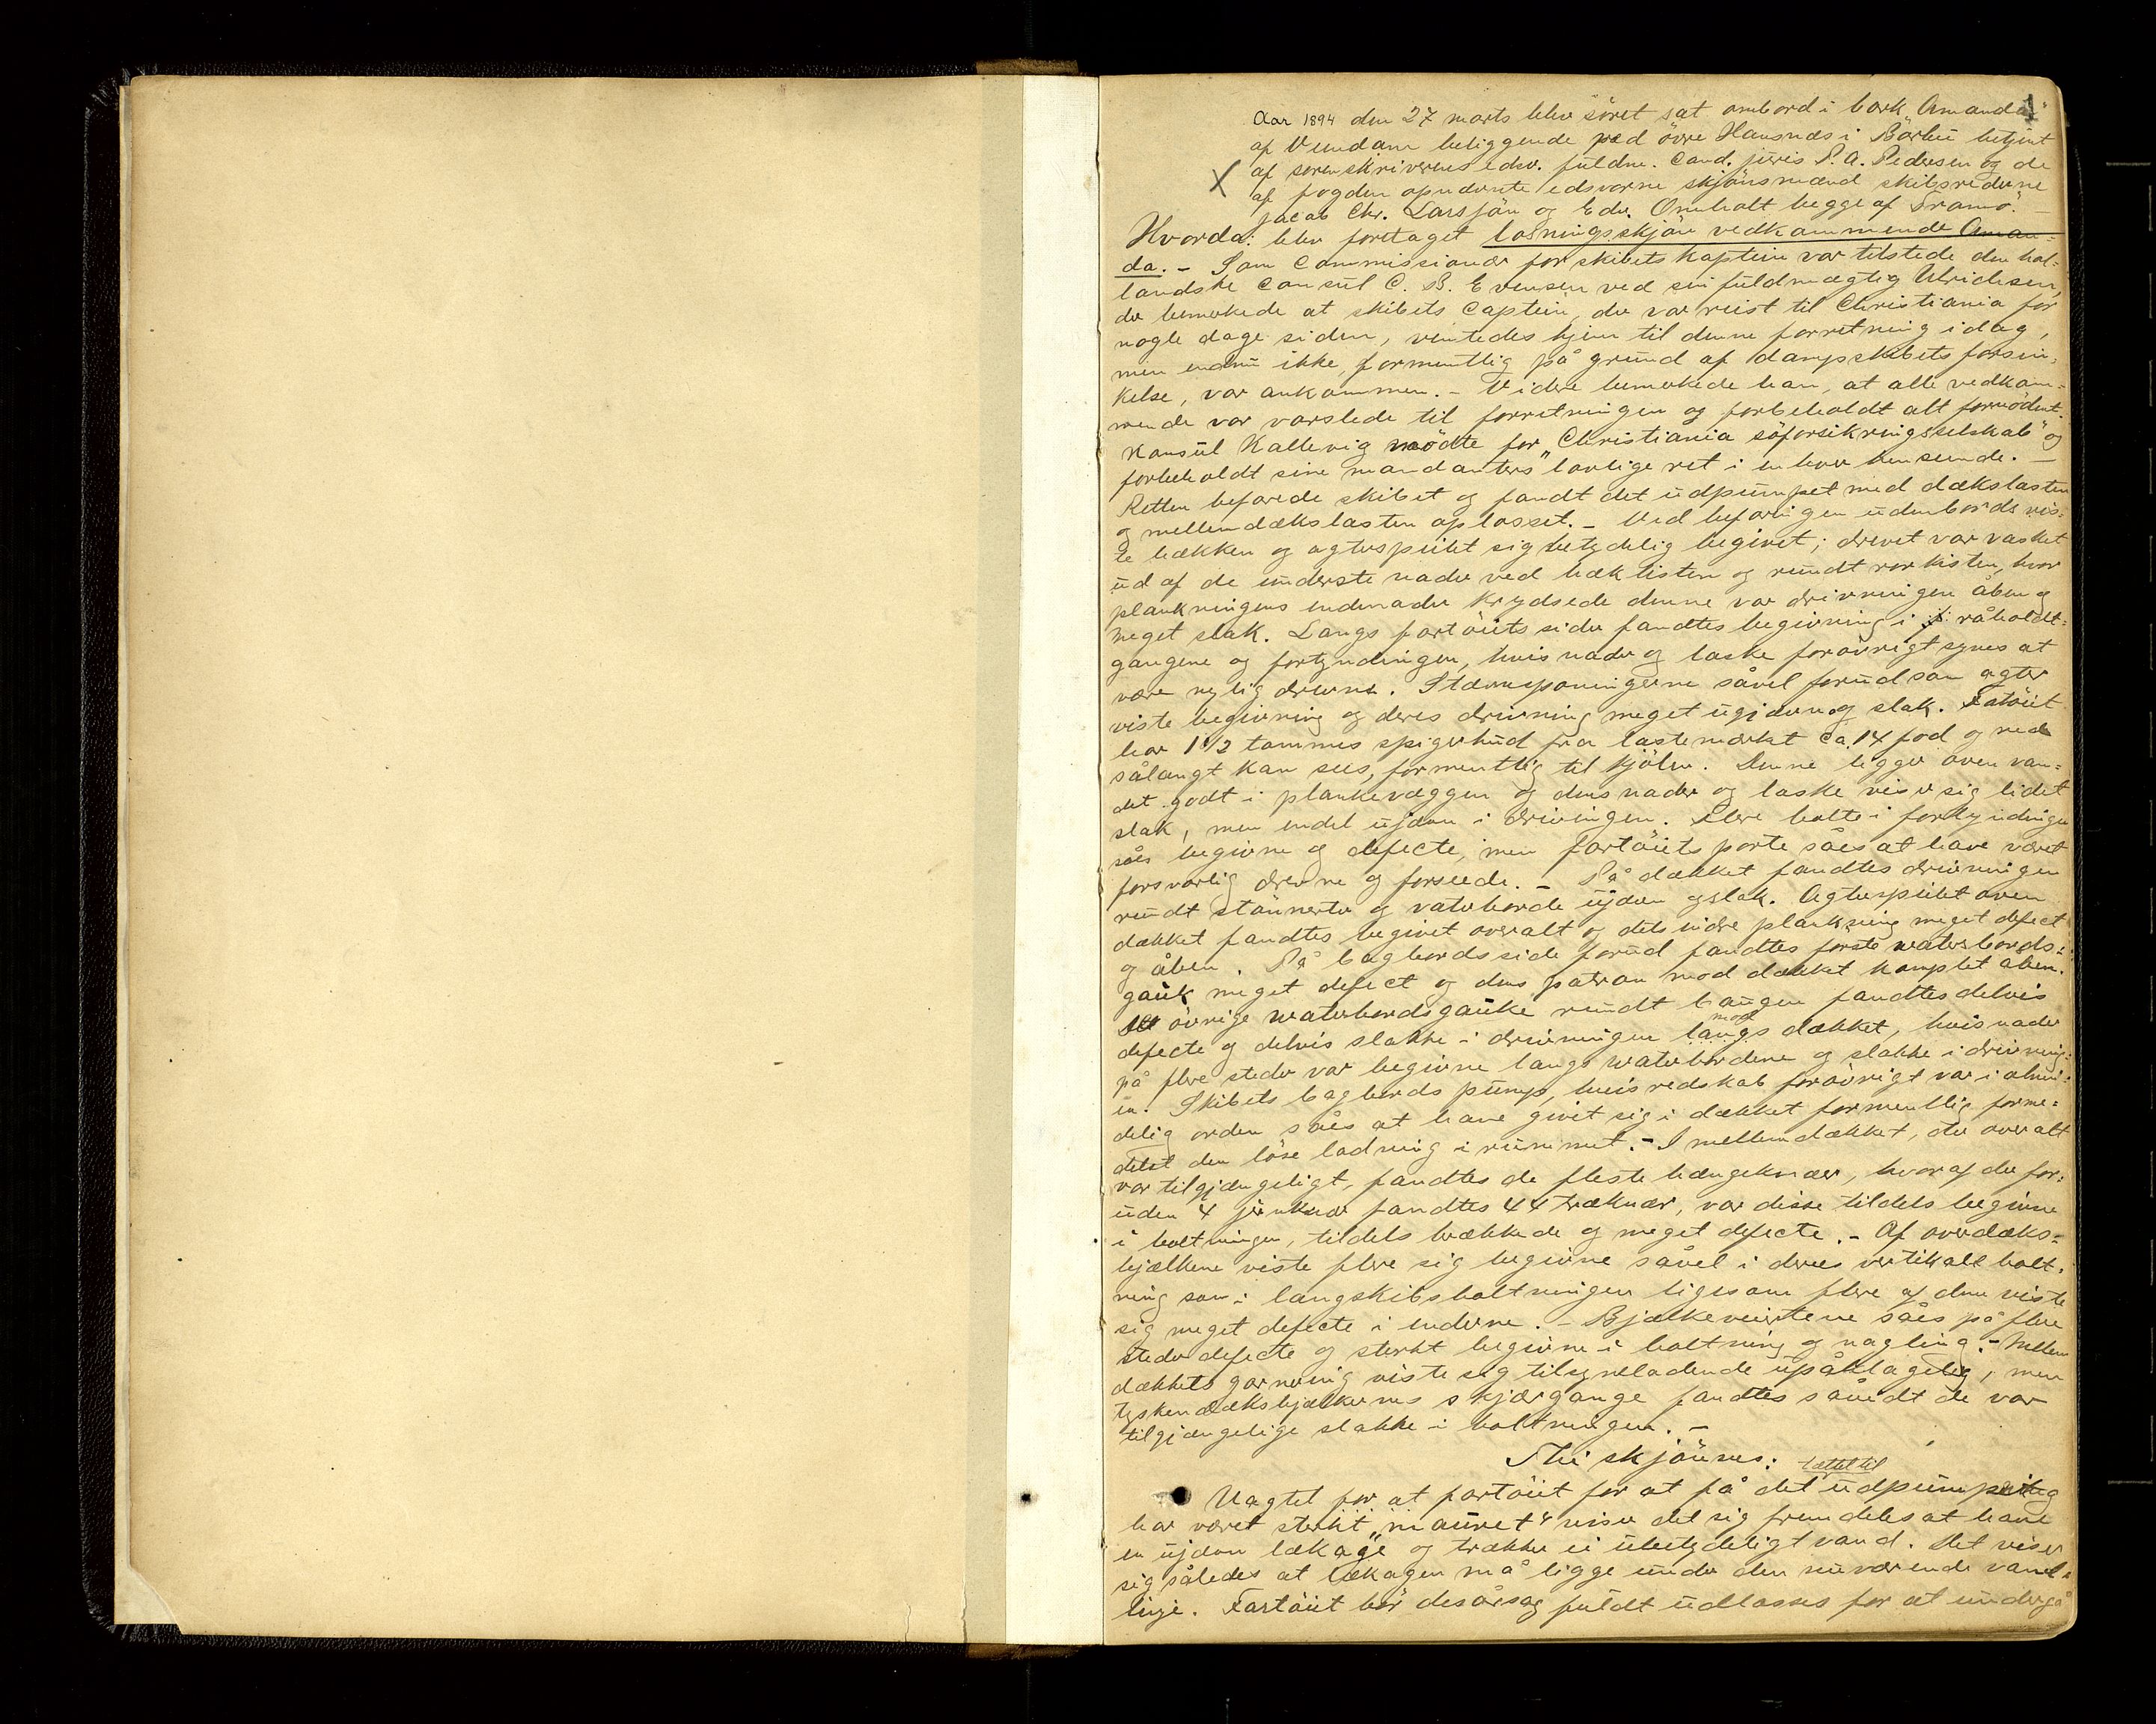 1
Aar 1894 den 27 marts blev söret sat ombord i bark „Amanda"
af Veendam beliggende ved övre Hausnæs i Barbu betjent
af sorenskriverens edsv. fuldm. Cand. juris P. A. Pedersen og de
X af fogden opnævnte edsvorne skjönsmænd skibsrederne
Jacob Chr. Larssön og Edv. Omholt begge af Tromö. —
Hvorda: blev foretaget losningsskjön vedkommende Aman-
da. – Som Commissionær for skibets kaptein var tilstede den hol-
landske Consul C. B. Evensen ved sin fuldmægtig Ulrichsen,
der bemærkede at skibets Captein, der var reist til Christiania for
nogle dage siden, ventedes hjem til denne forretning idag,
men endnu ikke, formentlig på grund af dampskibets forsin-
kelse, var ankommen. – Videre bemerkede han, at alle vedkom-
mende var varslede til forretningen og forbeholdt alt fornödent.
Konsul Kallevig mödte for „Christiania söforsikringsselskab" og
forbeholdt sine mandanters lovlige ret i enhver henseende. —
Retten befarede skibet og fandt det udpumpet med dækslasten
og mellemdækslasten oplosset. – Ved befaringen udenbords vis-
te hækken og agterspeilet sig betydelig begivet; drevet var vasket
ud af de underste nader ved hæklisten og rundt rorkisten, hvor
plankningens endenader krydsede denne var drivningen åben og
meget slak. Langs fartöiets sider fandtes begivning i råholdt-
gangene og fortyndingen, hvis nader og laske forövrigt synes at
være nylig drevne. Stævnsponingerne såvel forud som agter
viste begivning og deres drivning meget ujævn og slak. Fartöiet
har 1 1/2 tommes spigerhud fra lastemærket ca. 14 fod og ned
sålangt kan sees, formentlig til kjölen. Denne ligger oven van-
det godt i plankevæggen og dens nader og laske viser sig lidet
slak, men endel ujævn i drivningen. Flere bolte i fortyndingen
såes begivne og defecte, men fartöiets porte såes at have været
forsvarlig drevne og forseede. – På dækket fandtes drivningen
rundt stönnerter og vaterborde ujævn og slak. Agterspeilet oven
dækket fandtes begivet overalt og dets indre plankning meget defect
og åben. På bagbords side forud fandtes förste waterbords-
gang meget defect og dens patron mod dækket komplet åben.
De övrige waterbordsgange rundt baugen fandtes delvis
defecte og delvis slakke i drivningen langs mod dækket, hvis nader
på flere steder var begivne langs waterbordene og slakke i drivning-
en. Skibets bagbords pump, hvis redskab forövrigt var i almin-
delig orden såes at have givet sig i dækket formentlig forme-
delst den löse ladning i rummet. – I mellemdækket, der overalt
var tilgjængeligt, fandtes de fleste hængeknær, hvoraf der for-
uden 4 jernknær fandtes 44 træknær, var disse tildels begivne
i boltningen, tildels brækkede og meget defecte. – Af overdæks-
bjælkene viste flere sig begivne såvel i deres vertikale bolt-
ning som i langskibsboltningen ligesom flere af dem viste
sig meget defecte i enderne. – Bjælkeveierterne såes på flere
steder defecte og sterkt begivne i boltning og nagling. – Mellem
dækkets garnering viste sig tilsyneladende upåklagelig, men
tyskendæksbjælkernes skjærgange fandtes såvidt de var
tilgjængelige slakke i boltningen. –
Thi skjönnes:
Uagtet for at fartöiet for at få det tættet til udpumpning
har været sterkt „mauret" viser det sig fremdeles at have
en ujævn lækage og trækker ei ubetydeligt vand. Det viser
sig således at lækagen må ligge under den nuværende vand-
linje. Fartöiet bör desårsag fuldt udlosses for at undergå